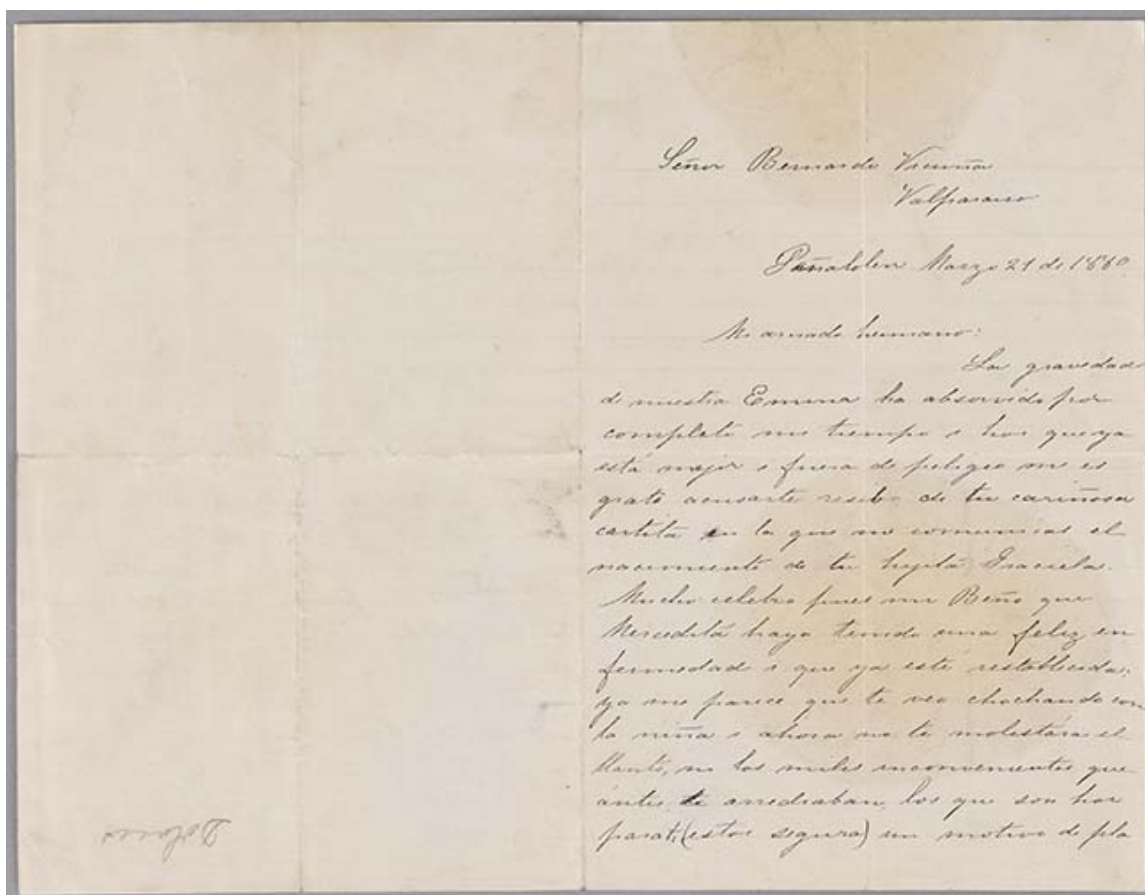 Señor Bernardo Vicuña
Valparaiso
Peñalolen Marzo 21 de 1880.
Mi amado hermano:
La gravedad
de nuestra Emma ha absorvido por
completo mi tiempo i hoi que ya
está mejor i fuera de peligro me es
grato acusarte recibo de tu cariñosa
cartita en la que me comunicas el
nacimiento de tu hijita Graciela.
Mucho celebro pues mi Beño que
Merceditá haya tenido una feliz en
fermedad i que ya esté restablecida;
ya me parece que te veo chochando con
la niña i ahora no te molestara el
llanto, ni los miles inconvenientes que
ántes te arredraban, los que son hoi
para ti, (estoi segura) un motivo de pla
Dolores